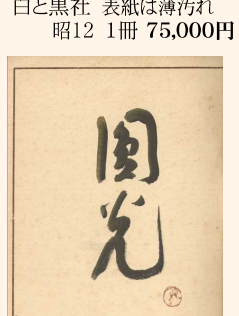 白と黒社 表紙は薄汚れ
昭12 1冊 75,000円
圓光